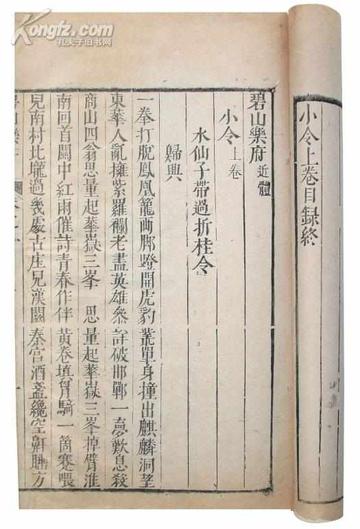 小令上卷目録終
碧山樂府 近體
小令 上卷
水仙子帶過折桂令
歸興
一拳打脫鳳凰籠兩脚蹬開虎豹叢單身撞出麒麟洞望
東華人亂擁紫羅襴老盡英雄參詳破邯鄲一夢歎息殺
商山四翁思量起華嶽三峯 思量起華嶽三峯掉臂淮
南回首關中紅雨催詩青春作伴黃卷填胷騎一箇蹇喂
兒南村北壠過幾處古庄兒漢闕秦宮酒盞纔空鼾睡方
Kongfz.com
孔夫子旧书网